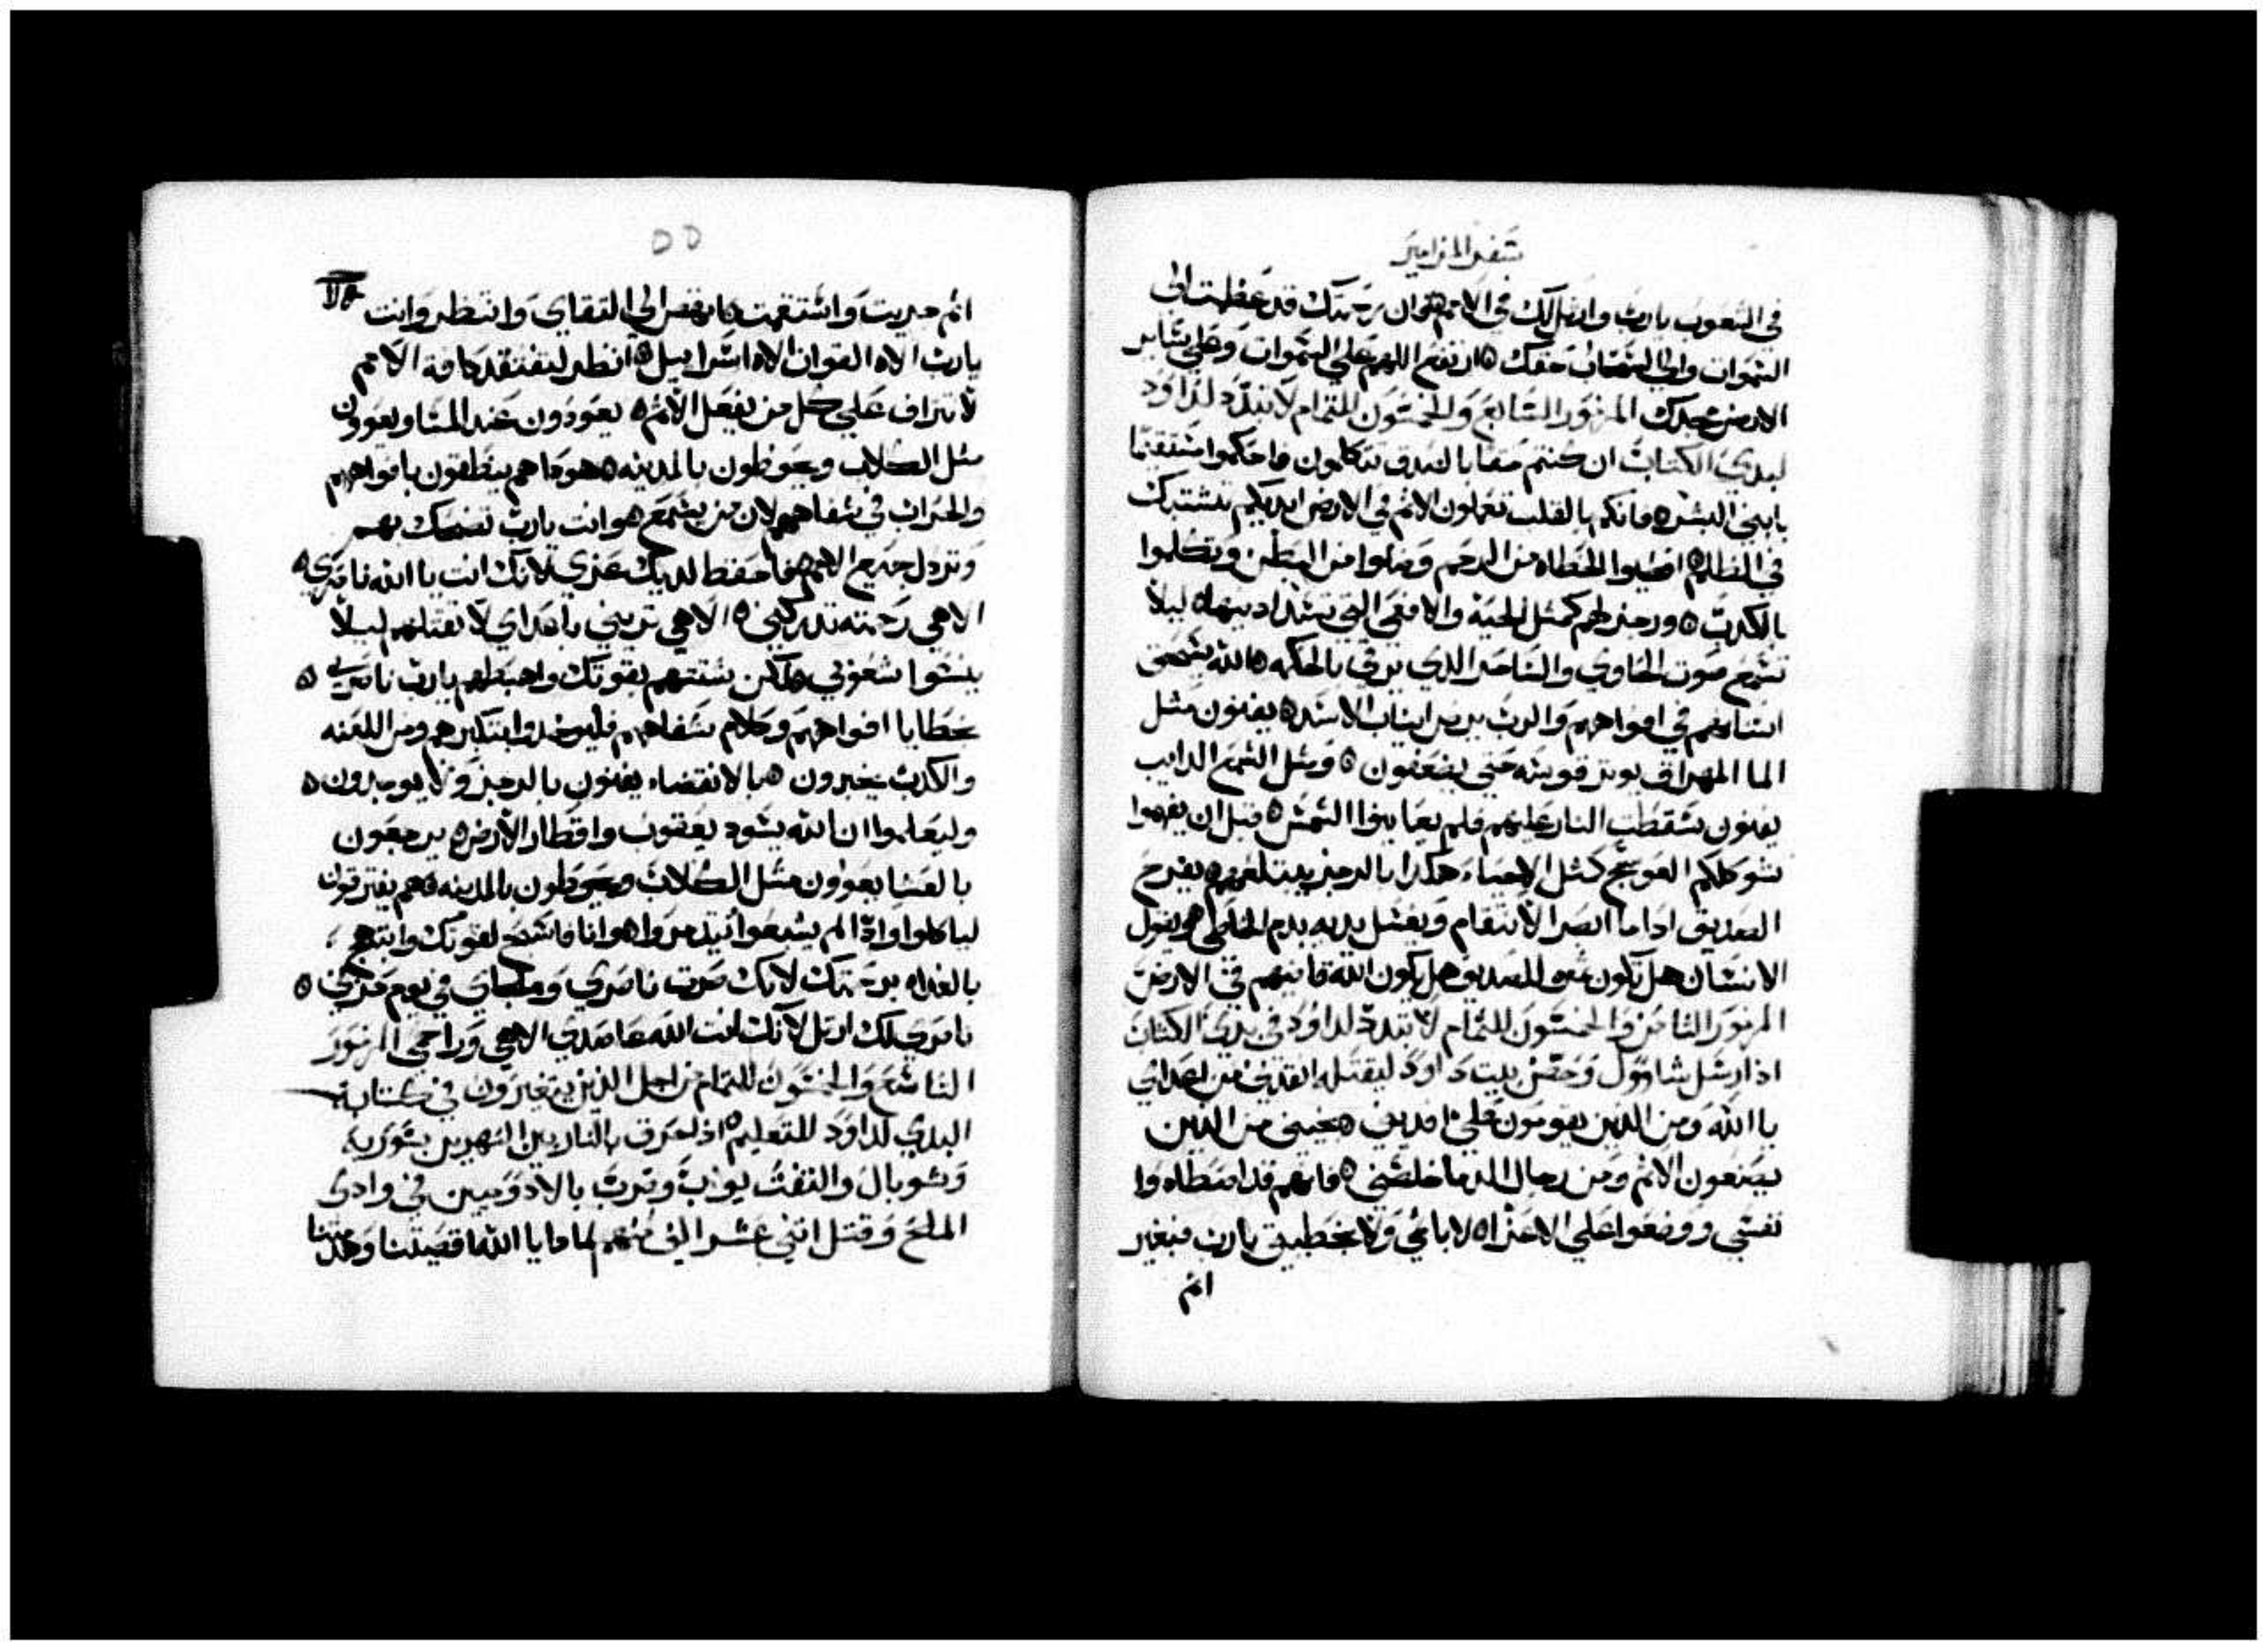 سفر المزامير
في الشعوب يارب وارتل لك في الامم ه فان رحمتك قد عظمت الى
السموات والى السحاب حقك ه ارتفع اللهم على السموات وعلى ساير
الارض مجدك المزمور السابع والخمسون للتمام لا تبدد لداود
لبدي الكتاب ان كنتم حقا بالصدق تتكلمون فاحكموا مستقيما
يابني البشر ه فانكم بالقلب تعملون الاثم في الارض ايديكم تشتبك
في الظلم ه اقصيوا الخطاه من الرحم وضلوا من البطن وتكلموا
بالكدب ه ورجز لهم كمثل الحية والافعى التي تسد ادنيها ه ليلا
تسمع صوت الحاوي والساحر الذي يرقي بالحكمه ه الله يسحق
اسنانهم في افواههم والرب يرض انياب الاسد ه يفنون مثل
الما المهراق يوتر قوسه حتى يضعفون ه ومثل الشمع الدايب
يفنون سقطت النار عليهم فلم يعاينوا الشمس ه قبل ان يفهموا
شوككم العوسج كمثل الاحياء هكدا بالرجز يبتلعهم ه يفرح
الصديق ادا ما ابصر الانتقام ويغسل يديه بدم الخاطي ه ويقول
الانسان هل تكون ثمره للصديق هل يكون الله قاضيهم في الارض
المزمور الثامن والخمسون للتمام لا تبدد لداود في بدي الكتاب
اذ ارسل شاوول وحفظ بيت داود ليقتله انقذني من اعداي
يا الله ومن الذين يقومون علي افديني ه نجيني من الذين
يصنعون الاثم ومن رجال الدما خلصني ه فانهم قد اصطادوا
نفسي ووضعوا علي الاعزاه لا باثمي ولا بخطيتي يارب فبغير
اثم
اثم جريت واستقمت ه انهض الى التقاي وانظر وانت
يارب الاه القوات الاه اسراييل ه انظر لتفتقد كافة الامم
لا تتراف على كل من يفعل الاثم ه يعودون عند المسا ويعوون
مثل الكلاب ويحوطون بالمدينه ه هودا هم ينطقون بافواههم
والحراب في شفاههم لان من يسمع ه وانت يارب تضحك بهم
وتردل جميع الامم ه فاحفظ لديك عزي لانك انت يا الله ناصري ه
الاهي رحمته تدركني ه الاهي تريني باعداي لا تقتلهم ليلا
ينسوا شعوبي ه لكن شتتهم بقوتك واهبطهم يارب ناصري ه
خطايا افواههم وكلام شفاههم فليوخدوا بتكبرهم ومن اللعنه
والكدب يخبرون ه بالانقضاء يفنون بالرجز ولا يوجدون ه
وليعلموا ان الله يسود يعقوب واقطار الارض ه يرجعون
بالعشا يعوون مثل الكلاب ويحوطون بالمدينه ه هم يفترقون
لياكلوا وادا لم يشبعوا يتدمروا ه وانا فاسبح لقوتك وابتهج
بالغداه برحمتك لانك صرت ناصري وملجاي في يوم حزني ه
ناصري لك ارتل لانك انت الله عاضدي الاهي وراحمي المزمور
التاسع والخمسون للتمام من اجل الذين يتغيرون في كتابة
البدي لداود للتعليم ه اذ احرق بالنار بين النهرين بسورية
وسوبال والتفت يواب وضرب بالادوميين في وادي
الملح وقتل اثني عشر الف منهم لماذا يا الله اقصيتنا وهدمتنا